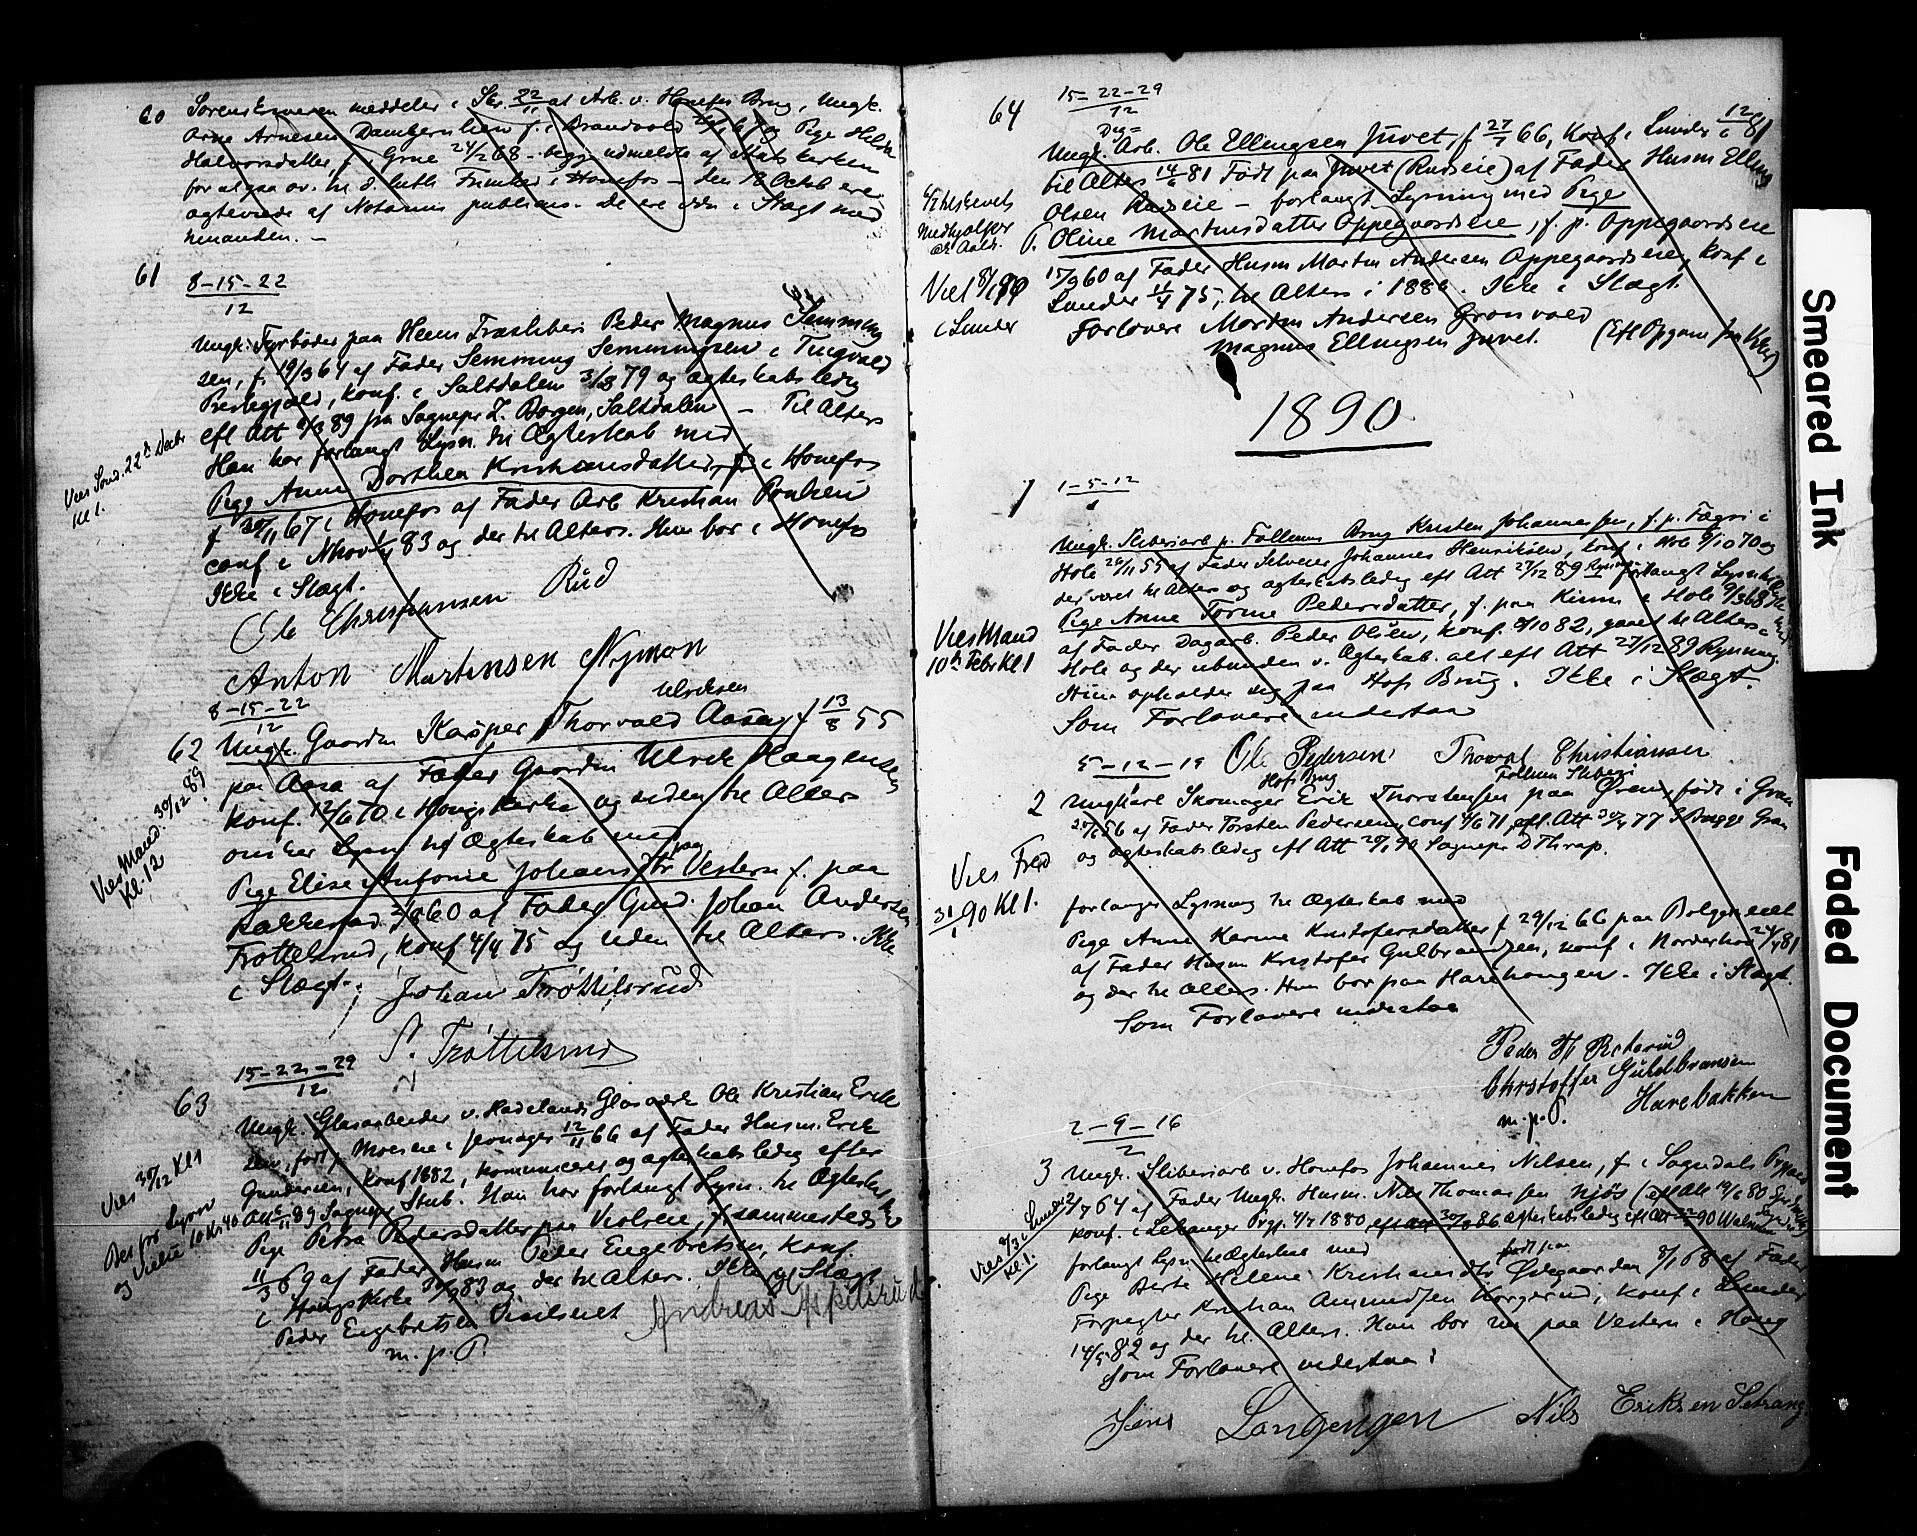 60
Sorenskriveren meddeler i Skr. 22/11 at Arb. v. Honefos Brug, Ungk.
Arne Arnesen Dambernlien f. i Brandvold 67 og Pige Helene
Halvorsdatter, f. i Grue 24/2 68 - begge udmeldte af Statskirken
for at gaa ov. til d. luth. Frimkd i Honefos - den 18 Octob ere
agteviede af Notarius publicus. De ere ikke i Slægt med
hinanden. -
61
8-15-22
12
Ungk. Fyrbøder paa Heens Træsliberi Peder Magnus Semming
sen, f. 19/3 64 af Fader Semming Semmingsen i Tingvold
Prestegjæld, konf. i Saltdalen 3/8 79 og ægteskabsledig
efl Att 89 fra Sognepr Z. Borgen, Saltdalen - Til Alters
Han har forlangt Lysn. til Ægteskab med
Pige Anne Dorthea Kristiansdatter, f. i Honefos
f 30/11 67 i Honefos af Fader Arb Kristian
conf i 83 og der til Alters. Hun bor i Honefos
Ikke i Slægt.
Viet Sond. 22de Decbr
Kl 1.
Ole Christiansen Rud
Anton Martinsen Nymon
8-15-22
12
62
Ulriksen
Ungk. Gaardm Kasper Thorvald Aasa, f 13/8 55
paa Aasa af Fader Gaardm Ulrik Haagensen
Konf. 12/6 70 i Hougs Kirke og siden til Alters
onsker Lysn til Ægteskab med
paa
Pige Elise Antonie Johansdtr Vestern f. paa
Rakkestad 3/8 60 af Fader Gmd. Johan Andersen
Trøttelsrud, konf 4/4 75 og siden til Alters. Ikke
i Slægt.
Viet Mand. 30/12 89
Kl. 12
Johan Trøttilsrud
S. Trøttelsrud
15-22-29
12
63
Ungk. Glasarbeider v. Hadelands Glasværk Ole Kristian Erik
sen, født p. Moeseie i Jevnager 12/11 66 af Fader Husm. Erik
Gundersen, Konf 1882, kommuniceret og ægteskabsledig efter
Att 6/11 89 Sognepr Stub. Han har forlangt Lysn. til Ægteskab med
Pige Petra Pedersdatter paa Veolseie, f. sammesteds
11/3 69 af Fader Husm Peder Engebretsen, Konf.
i Hougs Kirke 83 og der til Alters. Ikke i Slægt
Viet 30/12 Kl 1
Bet for Lysn
og Vielse 10 Kr 40
Peder Engebretsen
m. p. P.
Andreas Aspelsrud
64
15-22-29
12
Dag=
Ungk. Arb. Ole Ellingsen Juvet, f 27/7 66, Konf. i Lunder 12/6 81
til Alters 14/6 81 Født paa Juvet (Rudseie) af Fader Husm Elling
Olsen Rudseie - forlangt Lysning med Pige
P. Oline Martinsdatter Oppegaardseie, f. p. Oppegaardseie
17/9 60 af Fader Husm Martin Andersen Oppegaardseie, Konf i
Lunder 11/4 75, til Alters i 1886. Ikke i Slægt.
Forlovere Martin Andersen Grønvold
Magnus Ellingsen Juvet.
(Efl Opgave fra Kkr)
beskrevet
Medhjælper
Viet 8/1 90
i Lunder
1890
1
1-5-12
1
Ungk. Sliberiarb p. Follum Brug Kristen Johannesen, f. p. Fægri i
Hole 20/11 55 af Fader Selveier Johannes Henriksen, konf. i Hole 9/10 70 og
der været til Alters og ægteskabsledig efl Att 27/12 89 forlangt Lysn
Pige Anne Torine Pedersdatter, f. paa i Hole 9/3 68
af Fader Dagarb. Peder Olsen, konf. 8/10 82, gaaet til Alters i
Hole og der ubunden v. Ægteskab. alt efl Att 27/12 89 Rynning.
Hun opholder sig paa Hofs Brug. Ikke i Slægt.
Som Forlovere undertaa
Viet Mand
10de Febr Kl 1
Ole Pedersen
Hofs Brug
Thorval Christiansen
Follum Sliberi
2
5-12-19
1
Ungkarl Skomager Erik Thorstensen paa Øren, født i Gran
56 af Fader Torsten Pedersen, conf 71, efl. Att 77 S Bugge Gran
og ægteskabsledig efl Att 90 Sognepr D Thrap.
forlanger Lysning til Ægteskab med
Pige Anne Karine Kristofersdatter f 29/12 66 paa
af Fader Husm Kristofer Gulbrandsen, konf. i Norderhov 81
og der til Alters. Hun bor paa Harehaugen. Ikke i Slægt.
Som Forlovere undertaa
Viet Fred
31/1 90 Kl 1.
Peder
Christoffer Guldbransen
Harebakken
m. p. P.
2-9-16
2
3
Ungk. Sliberiarb v. Honefos Johannes Nilsen, f i Sogndals Prgjæld
2/7 64 af Fader Ungk. Husm. Nils Thomassen Njøs
konf. i Leikanger Prgj. 4/7 1880, 86 ægteskabsledig efl Att 90
forlangt Lysn til Ægteskab med
født paa
Pige Berte Helene Kristiansdtr Ødegaarden 8/1 68 af Fader
Forpagter Kristian Amundsen Korgerud, konf i Lunder
14/5 82 og der til Alters. Hun bor nu paa Vestern i Houg
Som Forlovere undertaa:
Viet 9/3 i Lunder
Kl 1.
Jens Langengen Nils Eriksen Setrang.
Smeared Ink
Faded Document